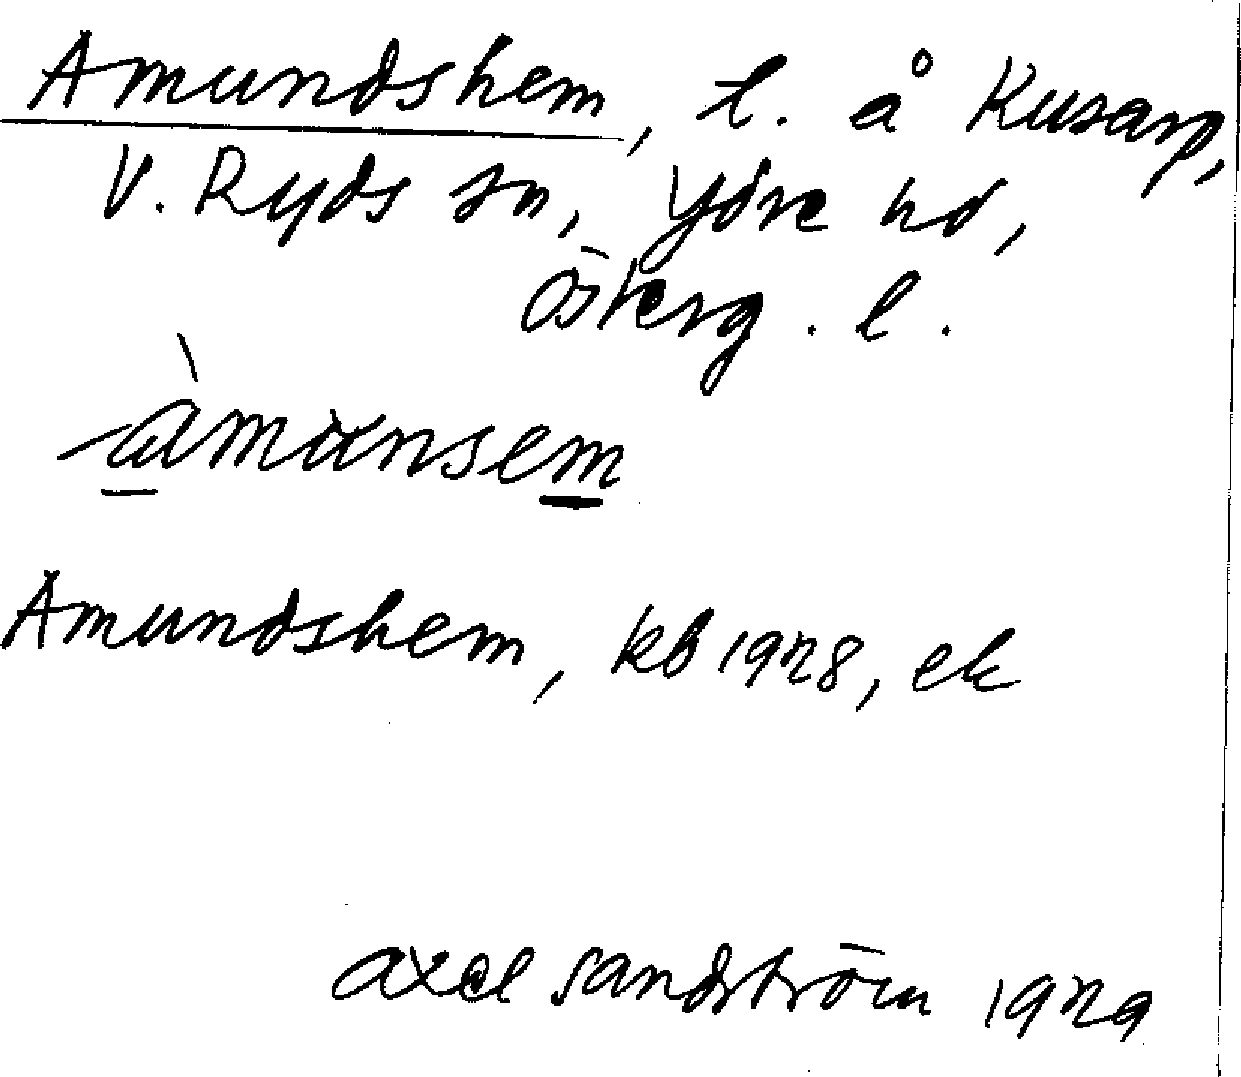 Amundshem, l. å Kusarp,
V. Ryds sn, Ydre hd,
Österg. l.
àmunsem
Amundshem, kb 1928, ek
Axel Sandström 1929